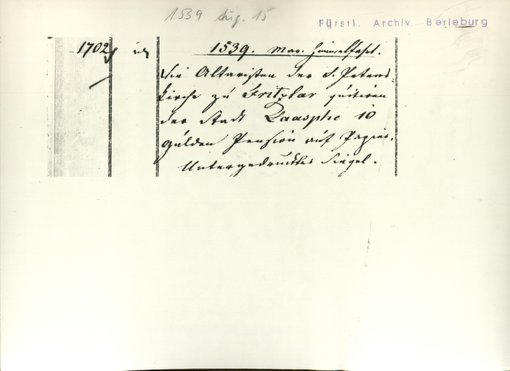 1539 Aug. 15
Fürstl. Archiv Berleburg
1702
1539. Mar. Himmelfahrt.
Die Altaristen der S. Peters
Kirche zu Fritzlar quitiren
der Stadt Laasphe 10
Gulden Pension auf Papier.
Untergedrucktes Siegel.